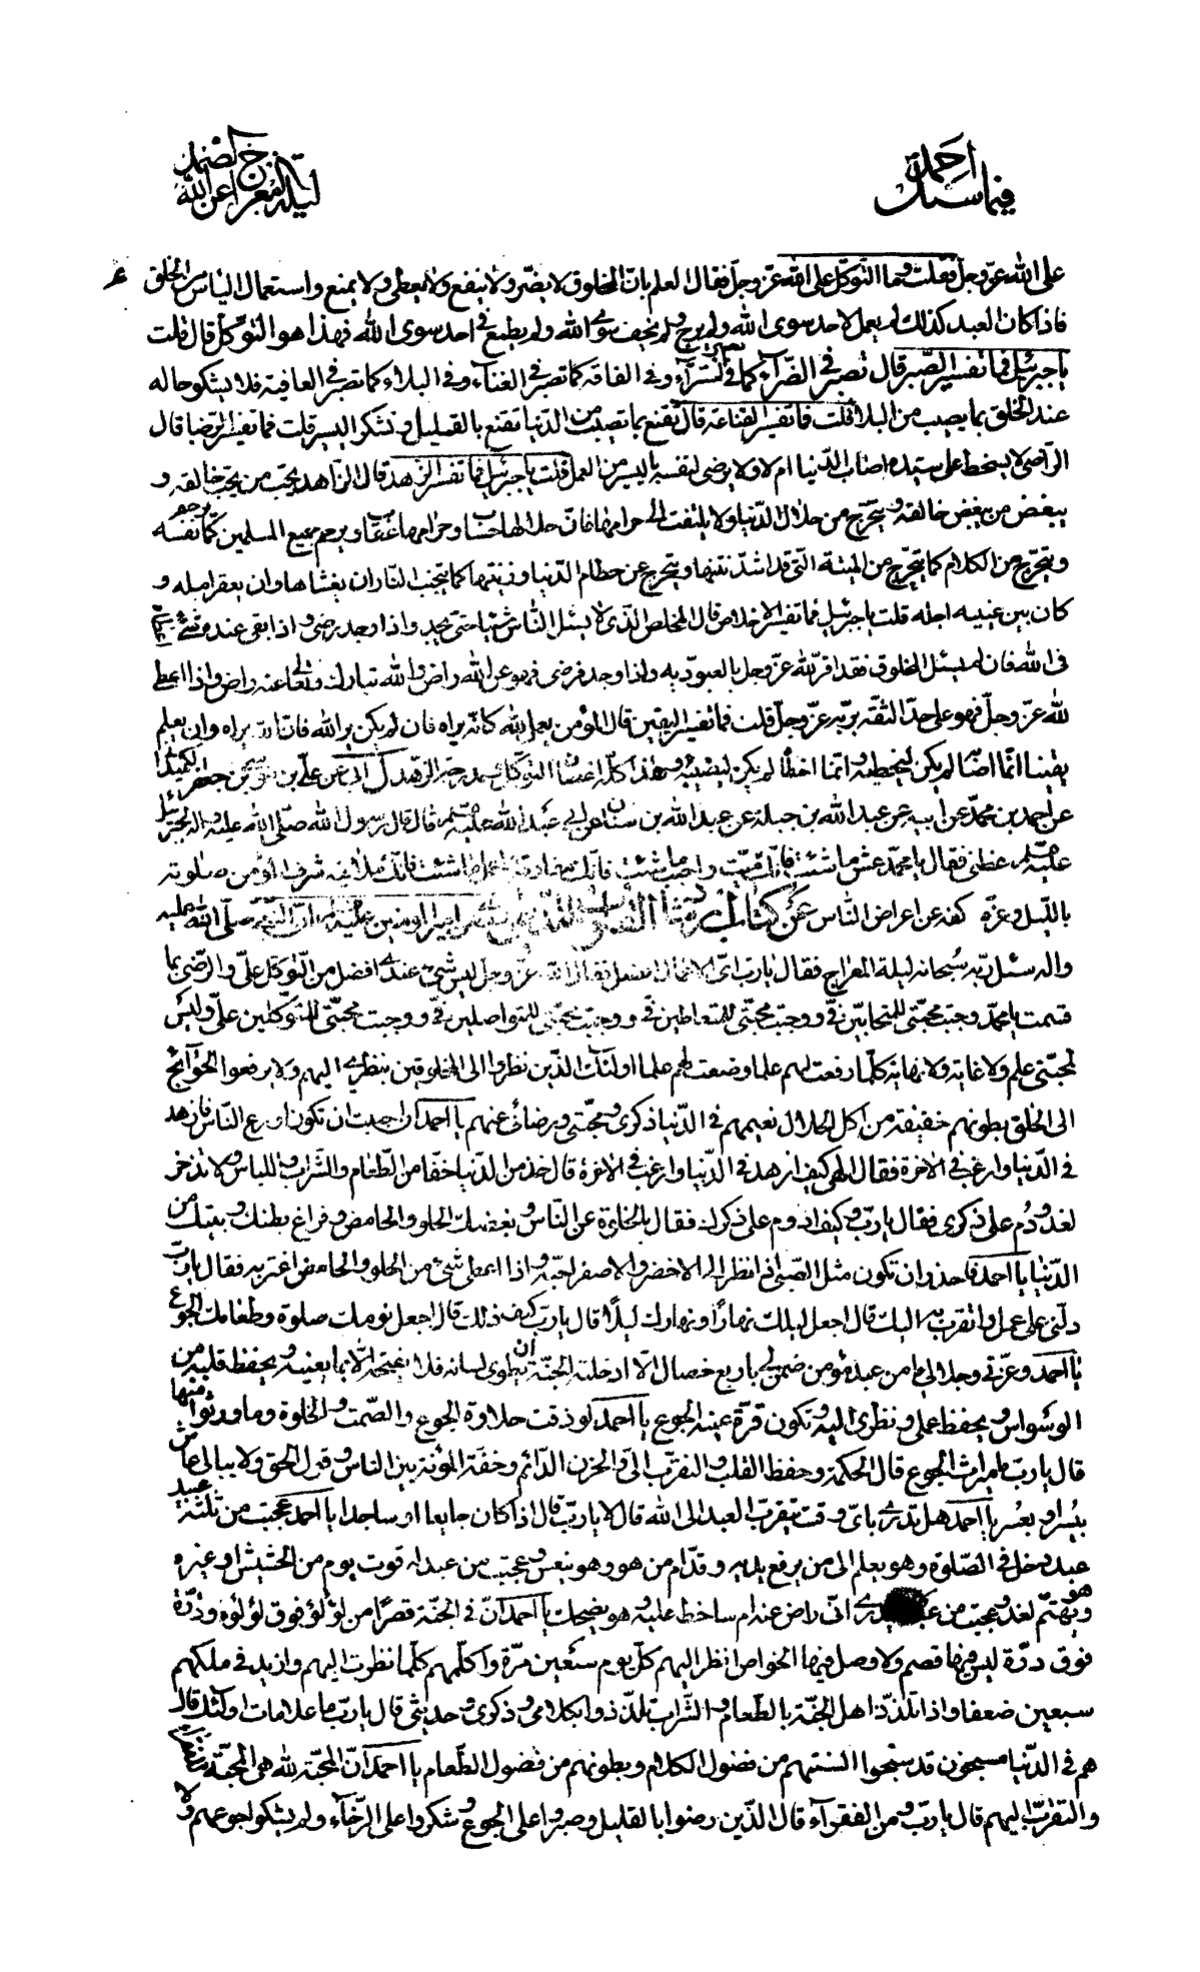 فيما سئل احمد
ليلة المعراج عن الله
على الله عزّ وجلّ فقلت وما التوكّل على الله عزّ وجلّ فقال العلم بانّ المخلوق لا يضرّ ولا ينفع ولا يعطى ولا يمنع واستعمال الياس من الخلق
فاذا كان العبد كذلك لم يعمل لاحد سوى الله ولم يرج ولم يخف سوى الله ولم يطمع فى احد سوى الله فهذا هو التوكّل قال قلت
يا جبرئيل فما تفسير الصّبر قال تصبر فى الضّرآء كما تصبر فى السّرآء وفى الفاقه كما تصبر فى الغنآء وفى البلاء كما تصبر فى العافية فلا يشكو حاله
عند الخلق بما يصيب من البلاء قلت فما تفسير القناعة قال يقنع بما يصيب من الدّنيا يقنع بالقليل ويشكر اليسير قلت فما تفسير الرّضا قال
الراضى لا يسخط على سيّده اصاب الدّنيا ام لا ولا يرضى لنفسه باليسير من العمل قلت يا جبرئيل فما تفسير الزّهد قال الزّاهد يحبّ من يحبّ خالقه و
يبغض من يبغض خالقه ويتحرّج من حلال الدّنيا ولا يلتفت الى حرامها فانّ حلالها حساب وحرامها عقاب ويرحم جميع المسلمين كما يرحم نفسه
ويتحرّج من الكلام كما يتحرّج من الميتة التى قد اشتدّ نتنها ويتحرّج عن حطام الدّنيا وزينتها كما يتجنّب النّار ان يغشاها وان يقصر امله و
كان بين عينيه اجله قلت يا جبرئيل فما تفسير الاخلاص قال المخلص الّذى لا يسئل النّاس شيئا حتى يجد واذا وجد رضى واذا بقى عنده شئ
فى الله فان لم يسئل المخلوق فقد اقرّ لله عزّ وجل بالعبوديّه واذا وجد فرضى فهو عن الله راض والله تبارك وتعالى عنه راض واذا اعطى
لله عزّ وجلّ فهو على حدّ الثقه بربّه عزّ وجلّ قلت فما تفسير اليقين قال المؤمن يعمل لله كانّه يراه فان لم يكن يرى الله فانّ الله يراه وان يعلم
يقينا انّ ما اصابه لم يكن ليخطيه وانّ ما اخطأه لم يكن ليصيبه وهذا كلّه اغصان التوكّل ومدرجة الزهد عن علىّ بن موسى بن جعفر الكميدا
عن احمد بن محمّد عن ابيه عن عبد الله بن جبلة عن عبد الله بن سنان عن ابى عبد الله عليه السّلم قال قال رسول الله صلّى الله عليه واله لجبرئيل
عليه السّلم عظنى فقال يا محمّد عش ما شئت فانّك ميّت واحبب ما شئت فانّك مفارقه واعمل ما شئت فانّك ملاقيه شرف المؤمن صلوته
بالليل وعزّه كفه عن اعراض الناس عن كتاب ارشاد القلوب امير المؤمنين عليه السّلم انّ النبى صلّى الله عليه
واله سئل ربّه سبحانه ليلة المعراج فقال يا ربّ اىّ الاعمال افضل فقال الله عزّ وجل ليس شئ عندى افضل من التّوكّل علىّ والرّضى بما
قسمت يا محمّد وجبت محبّتى للمتحابّين فىّ ووجبت محبّتى للمتعاطفين فىّ ووجبت محبّتى للمتواصلين فىّ ووجبت محبّتى للمتوكّلين علىّ وليس
لمحبّتى علم ولا غاية ولا نهاية كلّما رفعت لهم علما وضعت لهم علما اولئك الّذين نظروا الى المخلوقين بنظرى اليهم ولا يرفعوا الحوآئج
الى الخلق بطونهم خفيفة من اكل الحلال نعيمهم فى الدّنيا ذكرى ومحبّتى ورضائى عنهم يا احمد ان احببت ان تكون اورع النّاس فازهد
فى الدّنيا وارغب فى الاخرة فقال الهى كيف ازهد فى الدّنيا وارغب فى الاخرة قال خذ من الدّنيا خفّا من الطّعام والشّراب واللّباس ولا تدّخر
لغد ودُم على ذكرى فقال يا ربّ وكيف ادوم على ذكرك فقال بالخلوة عن النّاس وبغضك الحلو والحامض وفراغ بطنك وبيتك من
الدّنيا يا احمد فاحذر ان تكون مثل الصّبىّ اذا نظر الى الاخضر والاصفر احبّه واذا اعطى شئ من الحلو والحامض اغترّ به فقال يا ربّ
دلّنى على عمل اتقرّب به اليك قال اجعل ليلك نهارًا ونهارك ليلًا قال يا ربّ كيف ذلك قال اجعل نومك صلوة وطعامك الجوع
يا احمد وعزّتى وجلالى ما من عبد مؤمن ضمن لى باربع خصال الّا ادخلته الجنّة ان يطوى لسانه فلا يفتحه الّا بما يعنيه ويحفظ قلبه من
الوسواس ويحفظ علمى ونظرى اليه وتكون قرّة عينه الجوع يا احمد لو ذقت حلاوة الجوع والصّمت والخلوة وما ورثوا منها
قال يا ربّ ما ميراث الجوع قال الحكمة وحفظ القلب والتقرّب الىّ والحزن الدّائم وخفّة المؤنة بين الناس وقول الحق ولا يبالى عاش
بيُسر او بعُسر يا احمد هل تدرى باىّ وقت يتقرّب العبد الى الله قال لا يا ربّ قال اذا كان جايعا او ساجدا يا احمد عجبت من ثلثة عبيد
عبد دخل فى الصّلوة وهو يعلم الى من يرفع يديه وقدّام من هو وهو ينعس وعجبت من عبد له قوت يوم من الحشيش او غيره
وهو يهتمّ لغد وعجبت من عبد لا يدرى انّى راض عنه ام ساخط عليه وهو يضحك يا احمد انّ فى الجنّة قصرًا من لؤلؤ فوق لؤلؤة ودرّة
فوق درّة ليس فيها قصم ولا وصل فيها الخواص انظر اليهم كلّ يوم سبعين مرّة واكلّمهم كلّما نظرت اليهم وازيد فى ملكهم
سبعين ضعفا واذا تلذّذ اهل الجنّة بالطّعام والشّراب تلذّذوا بكلامى وذكرى وحديثى قال يا ربّ ما علامات اولئك قال
هم فى الدّنيا مسجونون قد سجنوا السنتهم من فضول الكلام وبطونهم من فضول الطّعام يا احمد انّ المحبّة لله هى المحبّة للفقرآء
والتقرّب اليهم قال يا ربّ ومن الفقرآء قال الّذين رضوا بالقليل وصبروا على الجوع وشكروا على الرّخآء ولم يشكوا جوعهم ولا